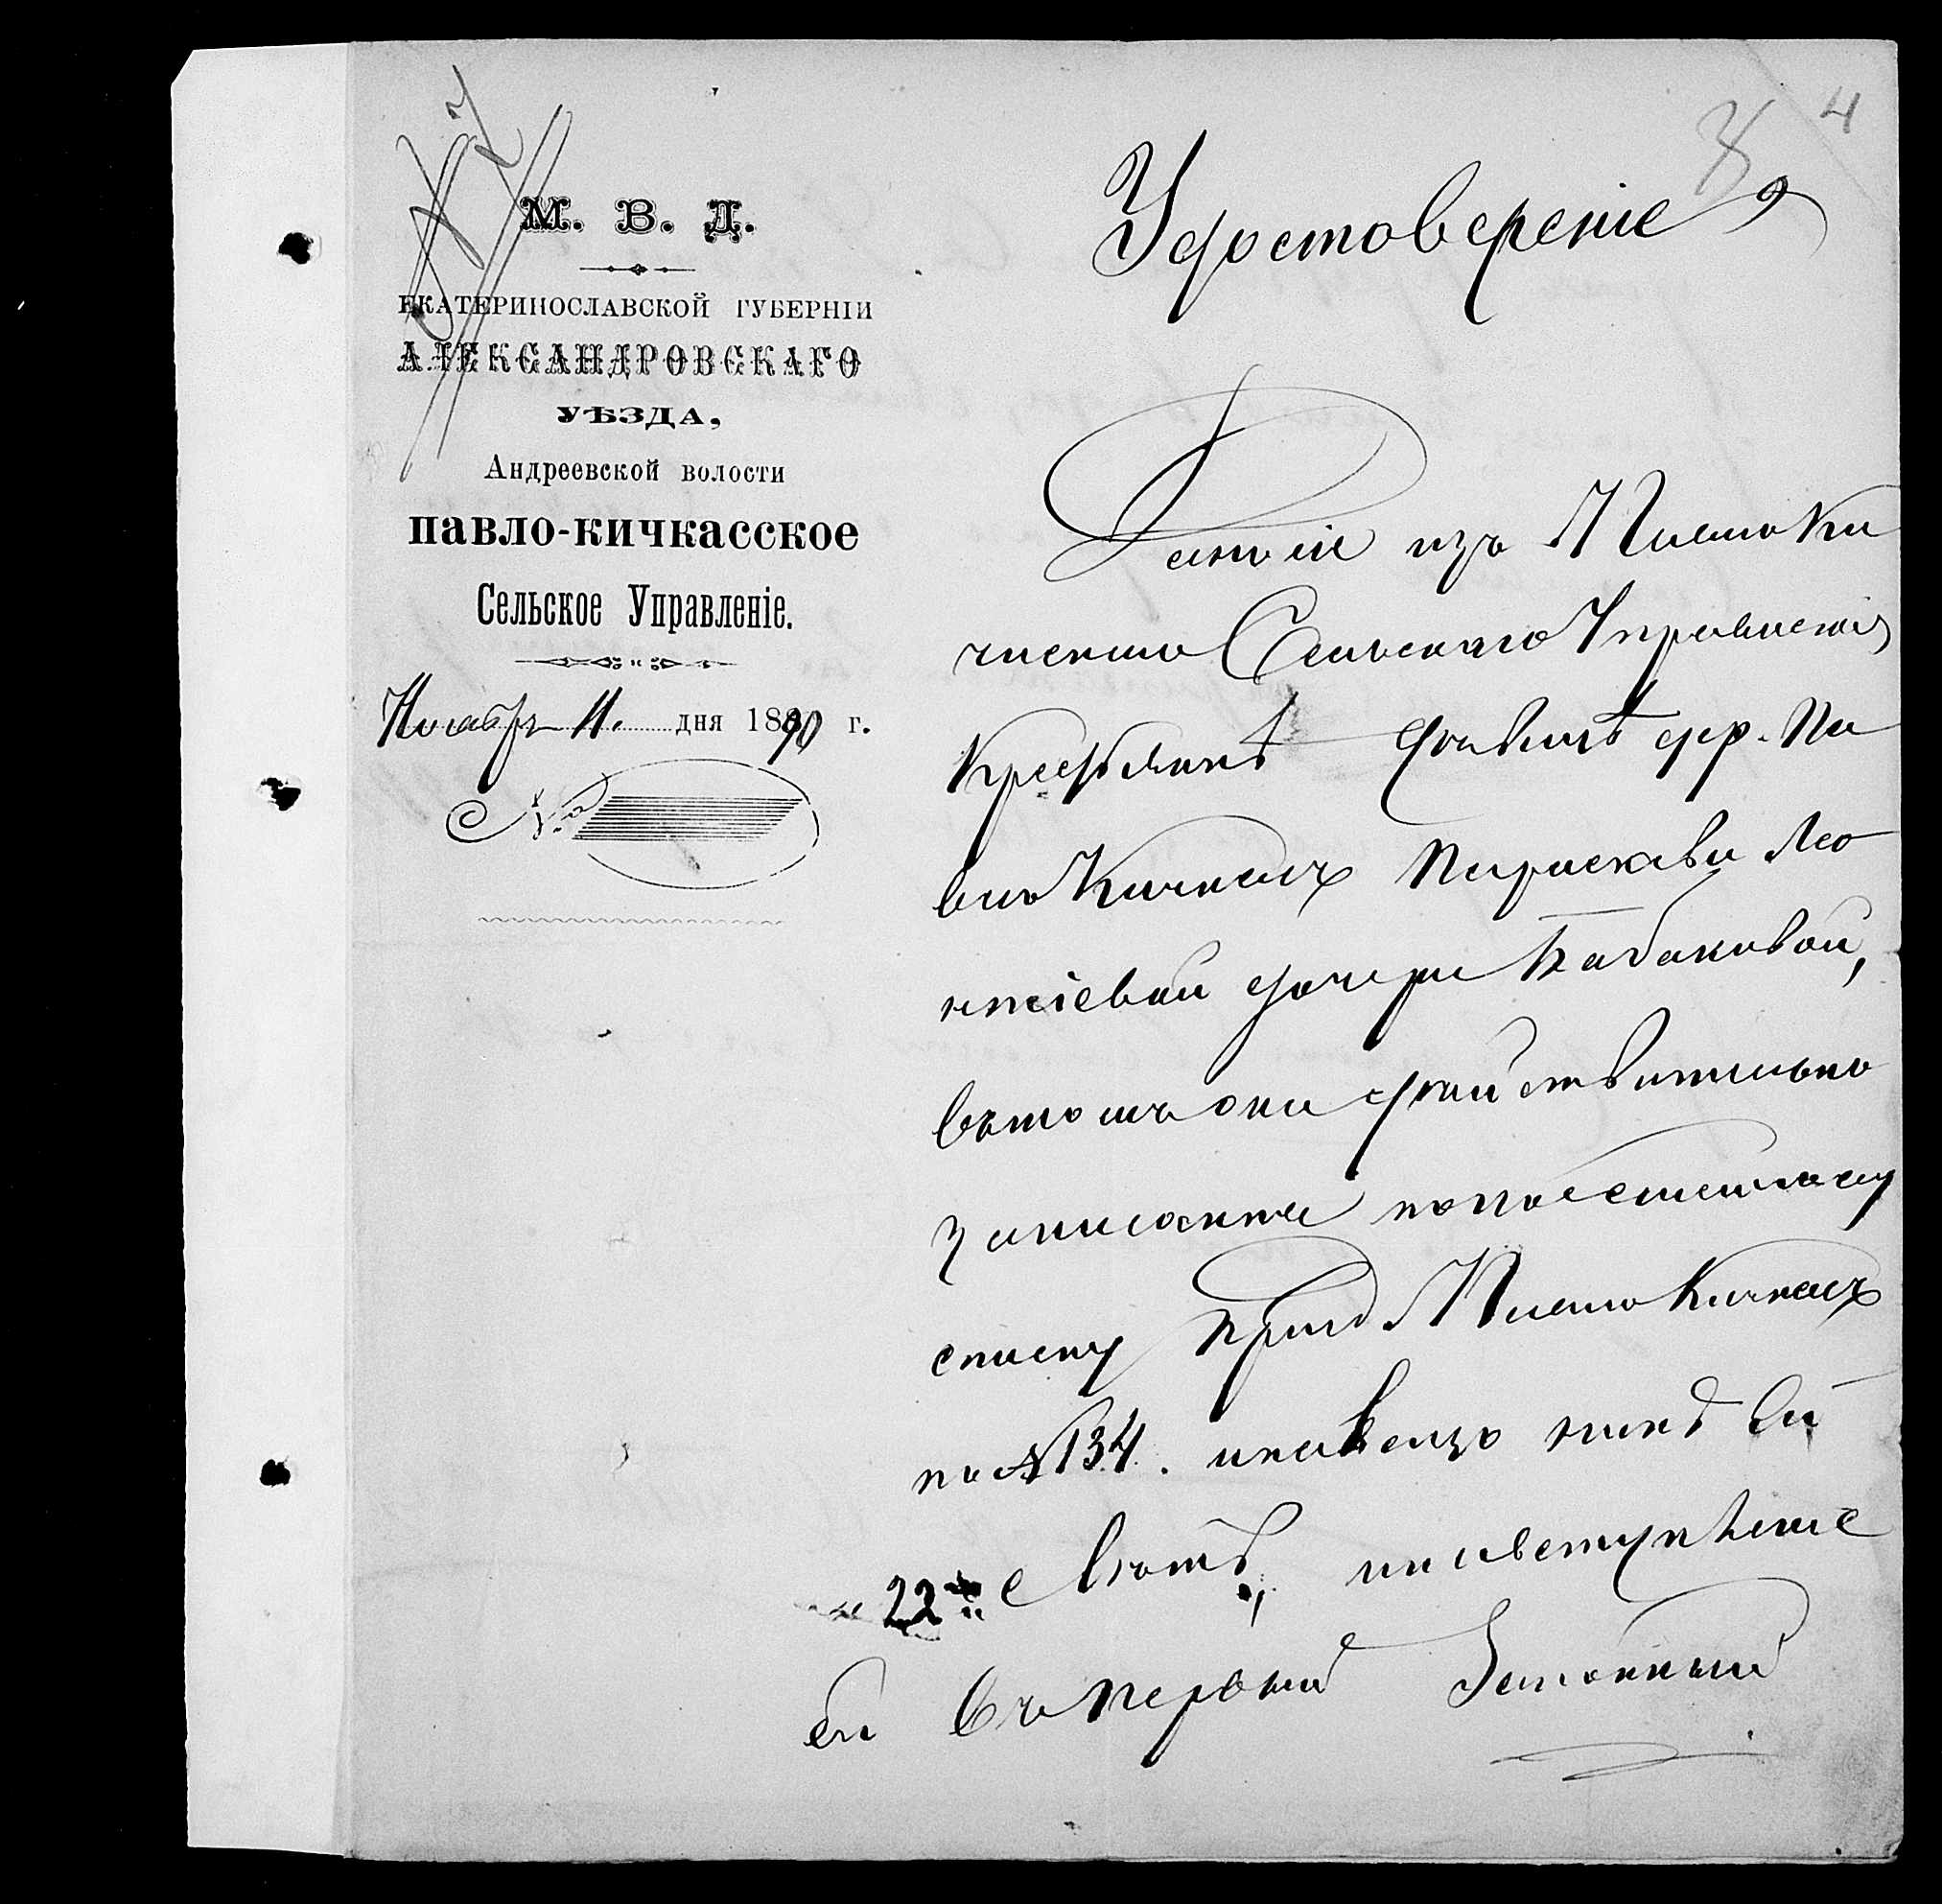 4
М. В. Д.
ЕКАТЕРИНОСЛАВСКОЙ ГУБЕРНІИ
АЛЕКСАНДРОВСКАГО
УѢЗДА,
Андреевской волости
ПАВЛО-КИЧКАССКОЕ
Сельское Управленіе.
Ноября 11. дня 1890 г.
№
Удостовереніе
Данъ сіе изъ Павло Ки
чкаскаго Сельскаго Управленія
Крестьянкѣ Дѣвицѣ дер. Па
вло Кичкасъ Параскеви Лео
нтіевой дочери Кабаковой,
въ томъ она дѣйствительно
записанна по посемейному
списку Дер. Павло Кичкасъ
по № 134. и ей
22 лѣтъ, на вступленіе
ей въ первый Законный